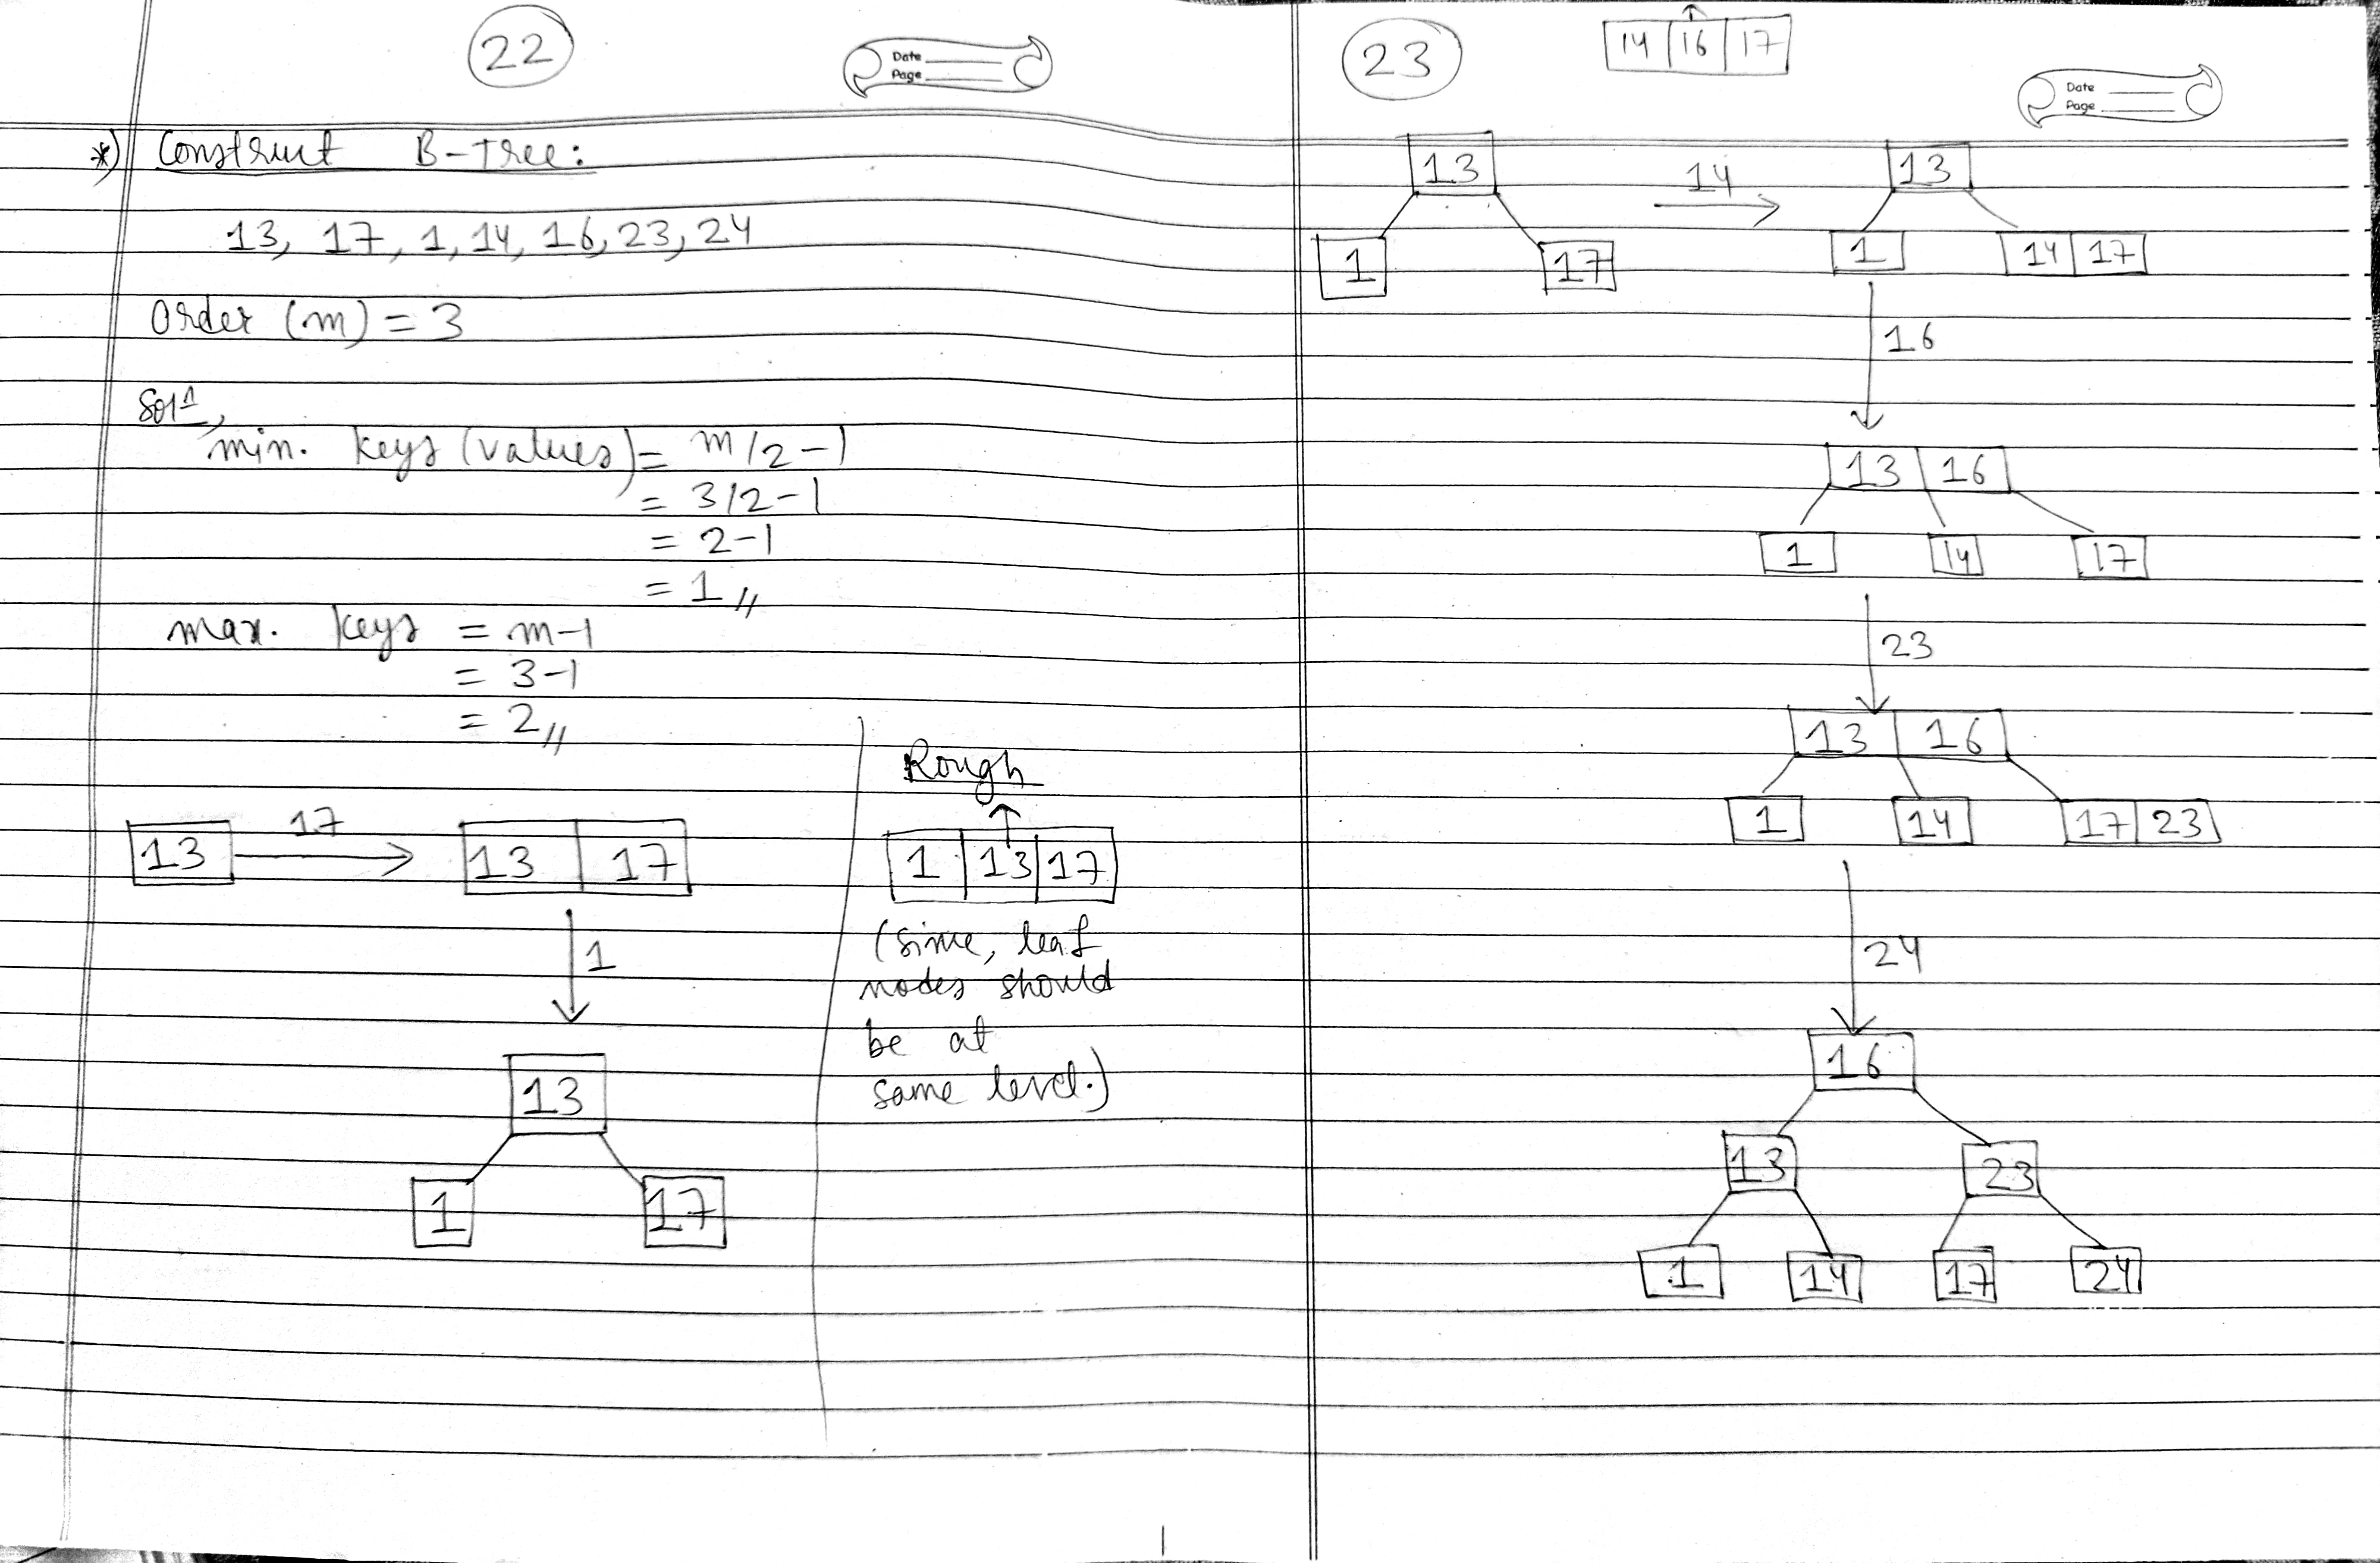 22
Date
Page
*) Construct B-Tree:
13, 17, 1, 14, 16, 23, 24
Order (m) = 3
Sol^n,
min. keys (values) = m/2 - 1
= 3/2 - 1
= 2-1
= 1 //
max. keys = m-1
= 3-1
= 2 //
13
17
13 17
1
13
1 17
Rough
↑
1 13 17
(since, leaf
nodes should
be at
same level.)
23
↑
14 16 17
Date
Page
13
1 17
14
13
1 14 17
16
13 16
1 14 17
23
13 16
1 14 17 23
24
16
13 23
1 14 17 24